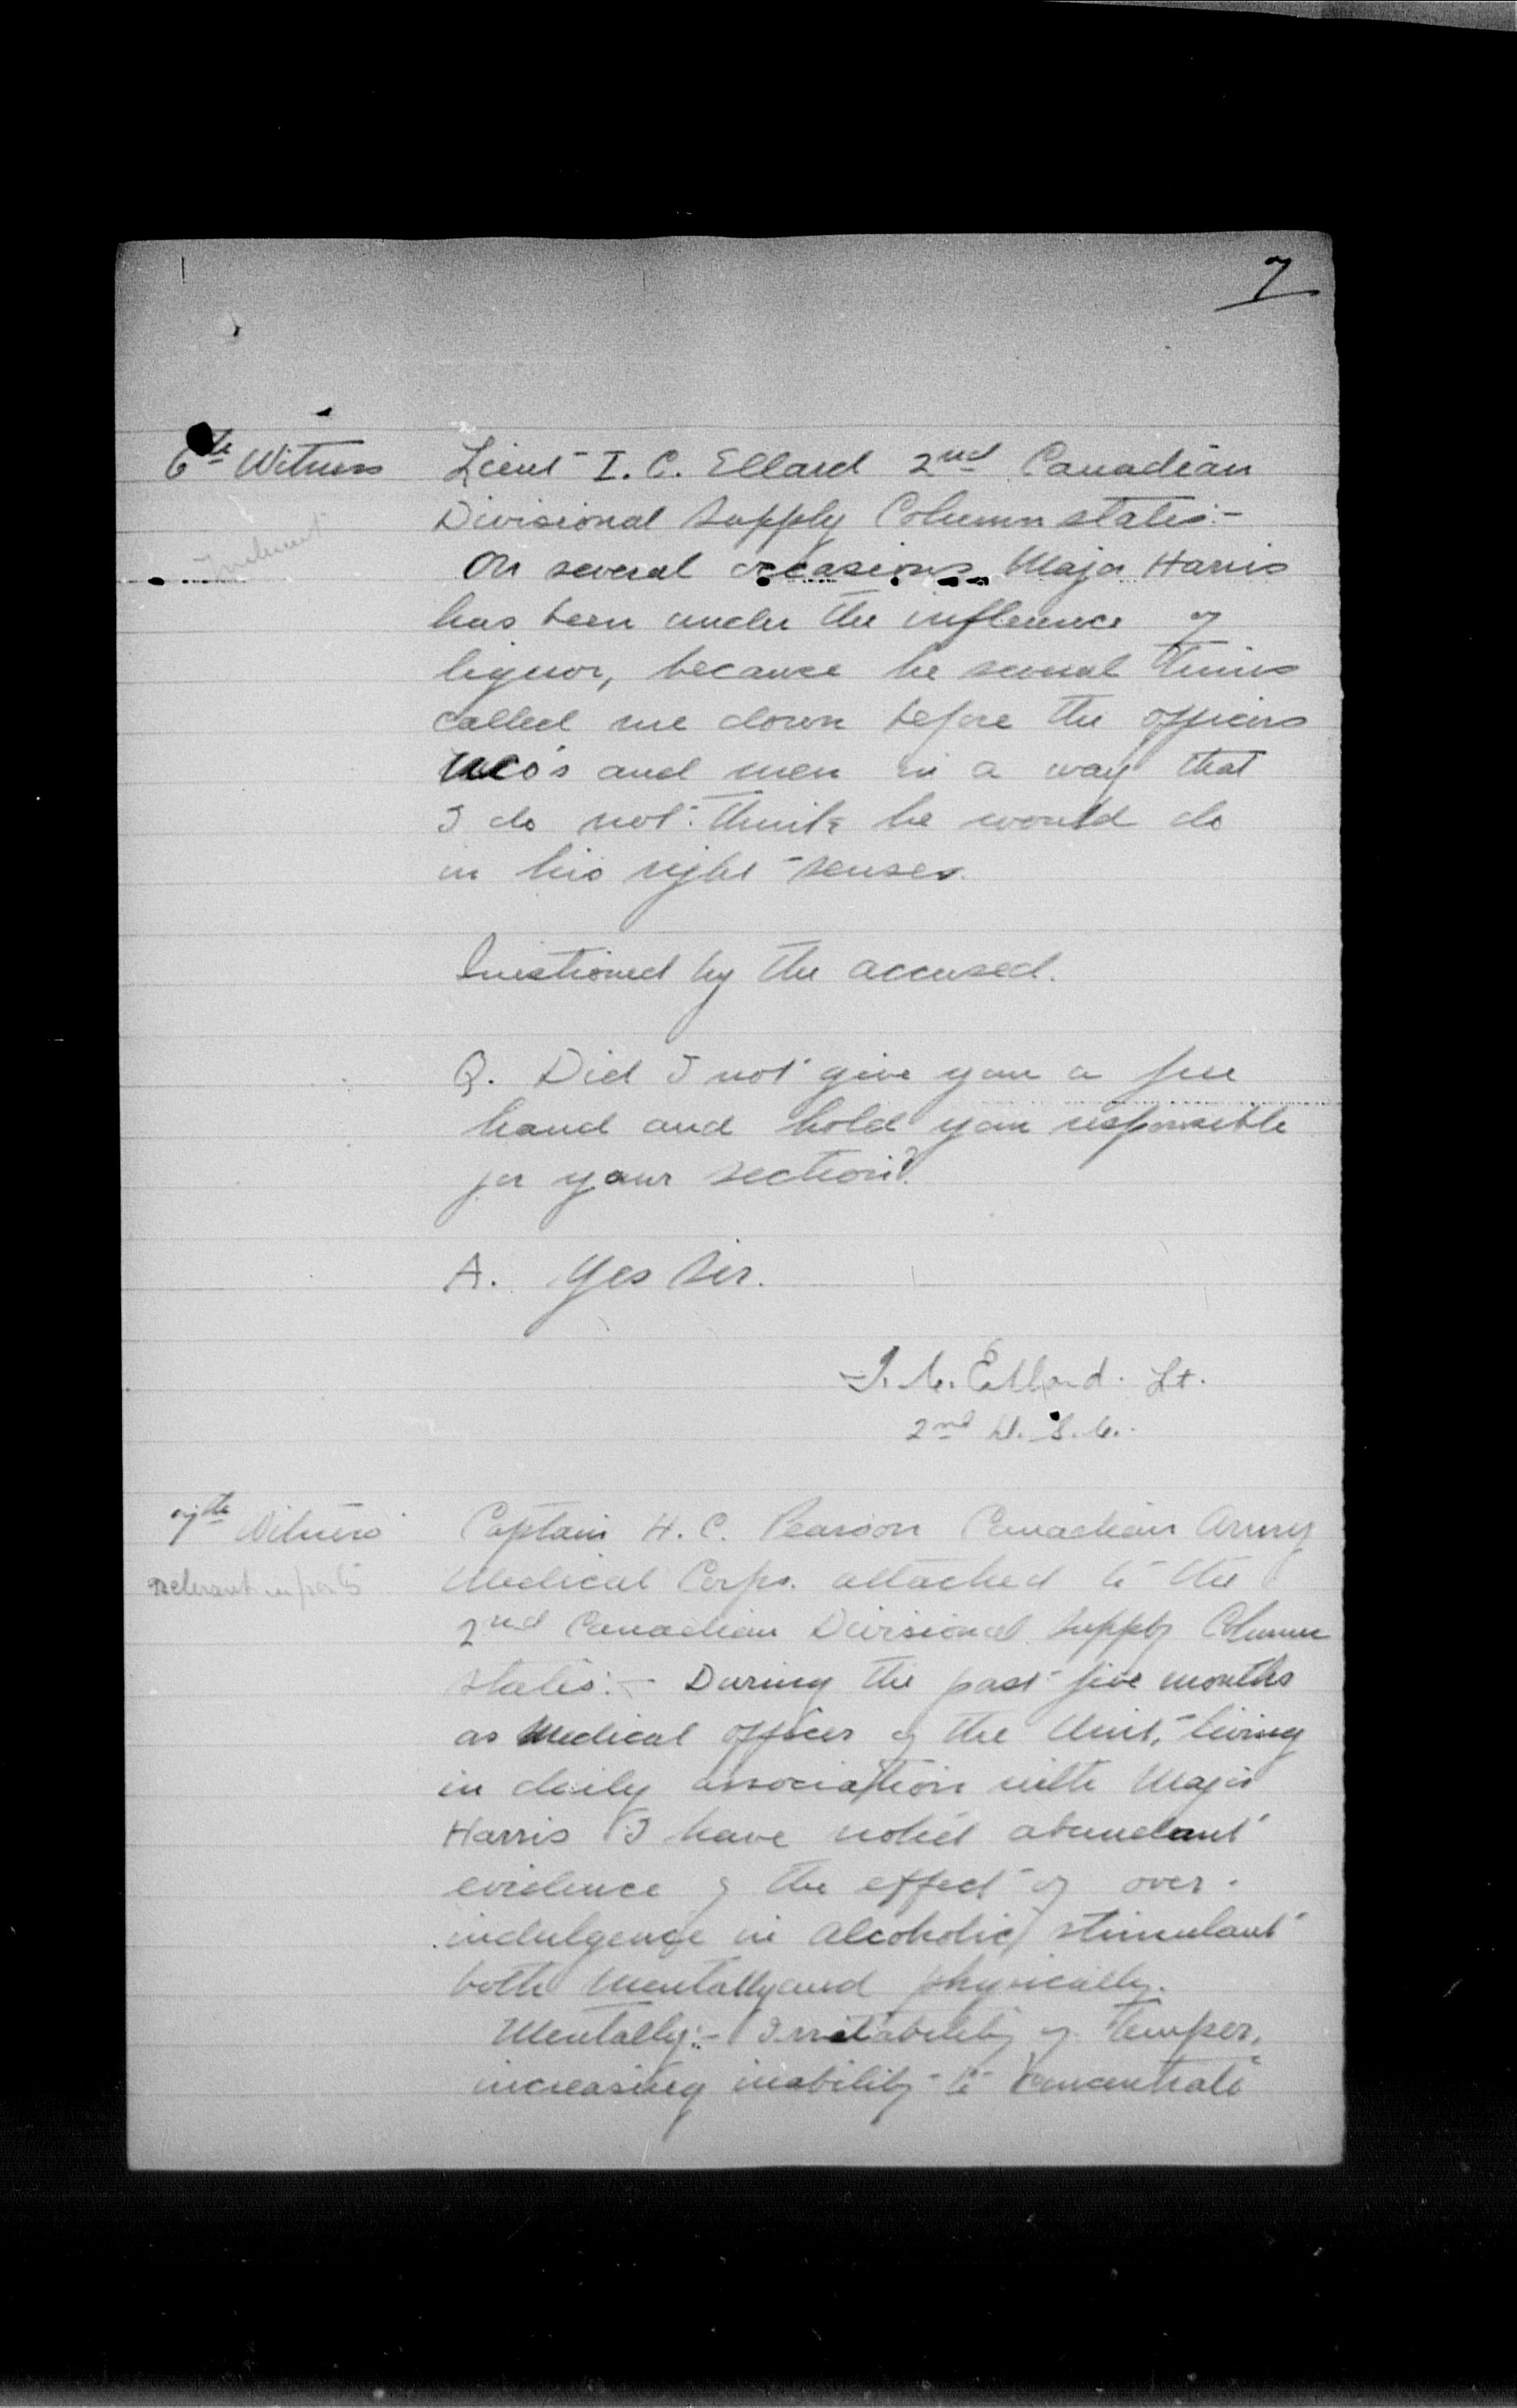 7
6th Witness Lieut I. C. Ellard 2nd Canadian
Divisional Supply Column states:-
On several occasions Major Harris
has been under the influence of
liquor, because he several times
called me down before the officers
NCO's and men in a way that
I do not think he would do
in his right senses.
Questioned by the accused.
Q. Did I not give you a free
hand and hold you responsible
for your section?
A. Yes Sir.
I. C. Ellard. Lt.
2nd D. S. C.
7th Witness Captain H. C. Pearson Canadian Army
relevant in parts Medical Corps. attached to the
2nd Canadian Divisional Supply Column
states:- During the past five months
as Medical Officer of the Unit, living
in daily association with Major
Harris I have noted abundant
evidence of the effect of over-
indulgence in alcoholic stimulant
both mentally and physically.
Mentally:- Irritability of temper,
increasing inability to concentrate